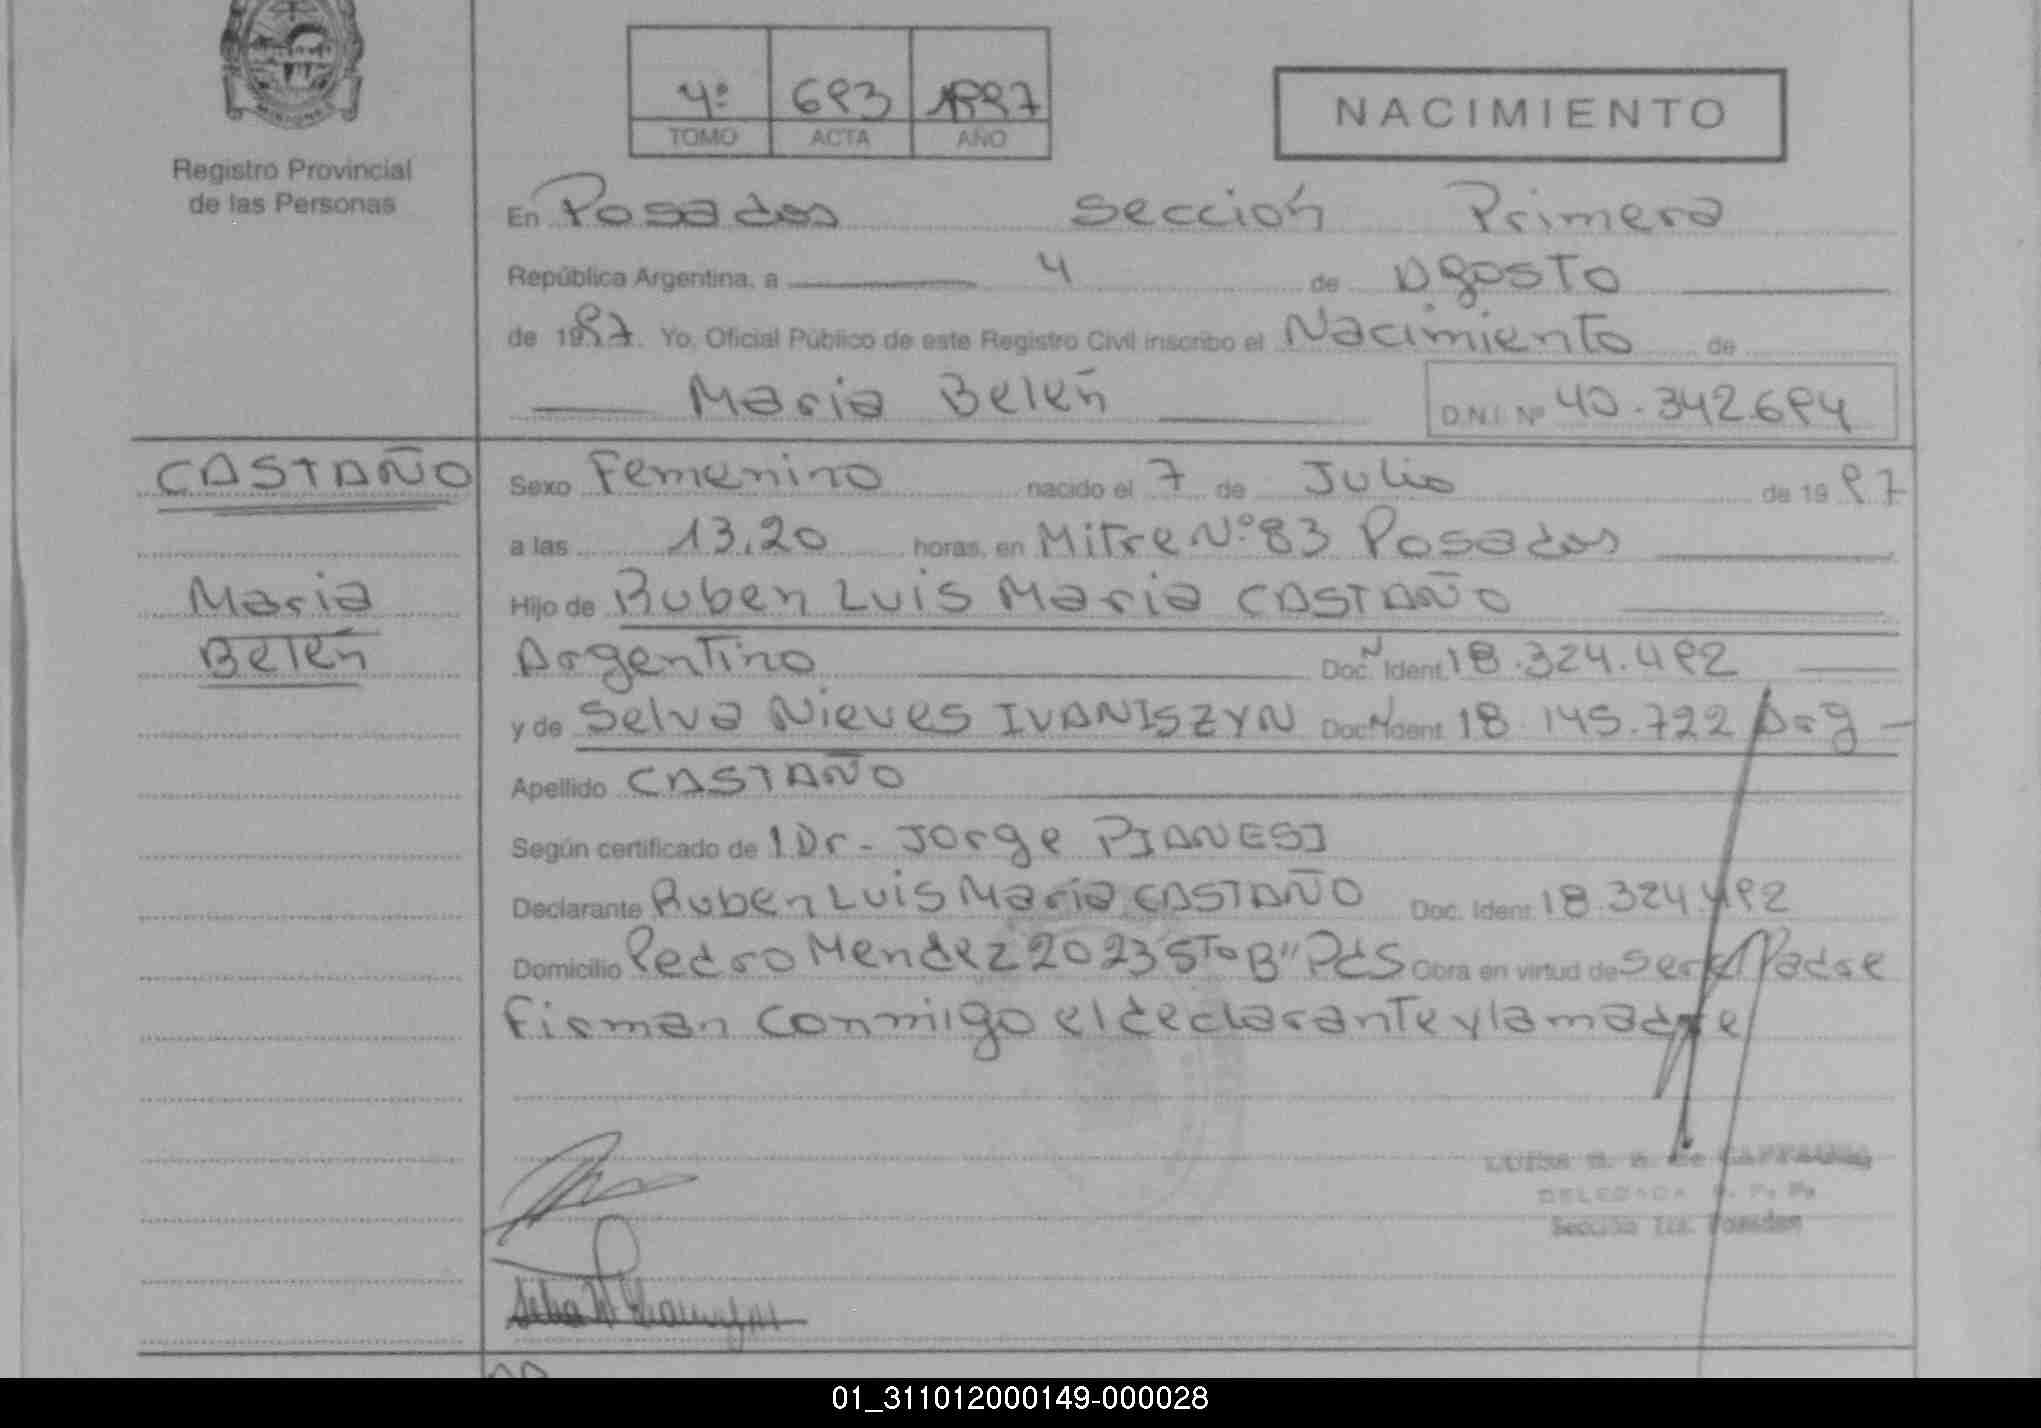 Registro Provincial
de las Personas
4º 693 1997
TOMO ACTA AÑO
NACIMIENTO
En Posadas Sección Primera
República Argentina, a 4 de Agosto
de 1997. Yo, Oficial Público de este Registro Civil inscribo el Nacimiento de
Maria Belén D.N.I. Nº 40.342.694
CASTAÑO
Maria
Belén
Sexo Femenino nacido el 7 de Julio de 1997
a las 13,20 horas, en Mitre Nº 83 Posadas
Hijo de Ruben Luis Maria CASTAÑO
Argentino Doc. N Ident. 18.324.492
y de Selva Nieves IVANISZYN Doc. N Ident. 18.145.722 Arg
Apellido CASTAÑO
Según certificado de l Dr - Jorge PIANESI
Declarante Ruben Luis Maria CASTAÑO Doc. Ident. 18.324.492
Domicilio Pedro Mendez 2023 Sto B" Pds Obra en virtud de ser el Padre
Firman conmigo el declarante y la madre
LUISA de
DELEGADA
Sección 1ra. Posadas
01_311012000149-000028